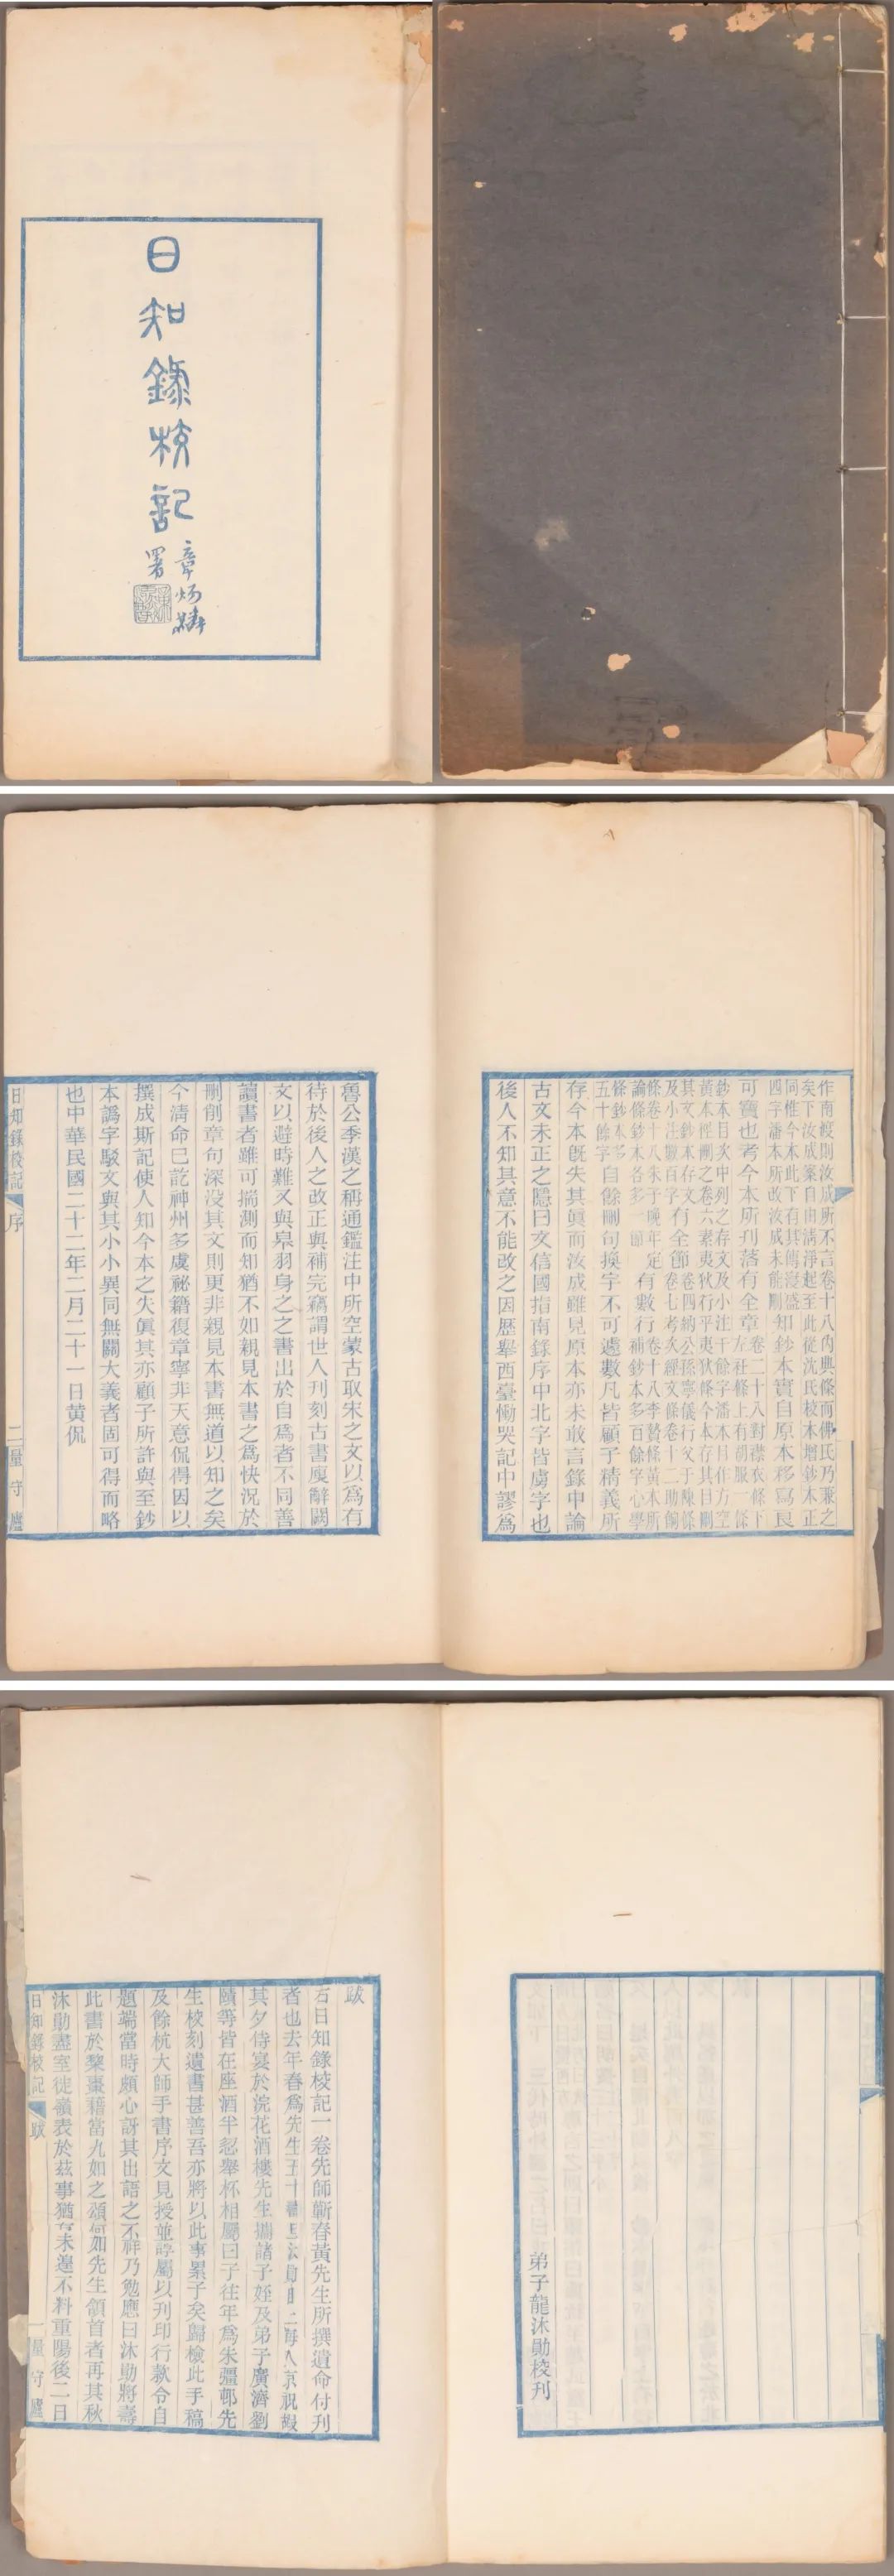 日知錄校記
章炳麟
署
作南瘦則汝成所不言卷十八內典條而佛氏乃兼之
矣下汝成案自由清淨起至此從沈氏校本增鈔本正
同惟今本此下有其傳寖盛
四字潘本所改汝成未能刪知鈔本實自原本移寫良
可寶也考今本所刊落有全章卷二十八對襟衣條下
左衽條上有胡服一條
鈔本目次中列之存文及小注千餘字潘本目作方空
黃本徑刪之卷六素夷狄行乎夷狄條今本存其目刪
其文鈔本存文有全節卷四納公孫寧儀行父于陳條
及小注數百字卷七考次經文條卷十二助餉
條卷十八朱子晚年定有數行卷十八李贄條黃本所
論條鈔本各多一節補鈔本多百餘字心學
條鈔本多
五十餘字自餘刪句換字不可遽數凡皆顧子精義所
存今本旣失其眞而汝成雖見原本亦未敢言錄中論
古文未正之隱曰文信國指南錄序中北字皆虜字也
後人不知其意不能改之因歷舉西臺慟哭記中謬爲
魯公季漢之稱通鑑注中所空蒙古取宋之文以爲有
待於後人之改正與補完竊謂世人刊刻古書廋辭闕
文以避時難又與皋羽身之之書出於自爲者不同善
讀書者雖可揣測而知猶不如親見本書之爲快況於
刪削章句深沒其文則更非親見本書無道以知之矣
今清命巳訖神州多虞祕籍復章寧非天意侃得因以
撰成斯記使人知今本之失眞其亦顧子所許與至鈔
本譌字駁文與其小小異同無關大義者固可得而略
也中華民國二十二年二月二十一日黃侃
日知錄校記
序
二
量守廬
弟子龍沐勛校刊
跋
右日知錄校記一卷先師蘄春黃先生所撰遺命付刊
者也去年春爲先生五十
海入京祝嘏
其夕侍宴於浣花酒樓先生攜諸子姪及弟子廣濟劉
賾等皆在座酒半忽舉杯相屬曰子往年爲朱彊邨先
生校刻遺書甚善吾亦將以此事累子矣歸檢此手稿
及餘杭大師手書序文見授並諄屬以刊印行款令自
題端當時頗心訝其出語之不祥乃勉應曰沐勛將壽
此書於棃棗藉當九如之頌何如先生頷首者再其秋
沐勛盡室徙嶺表於茲事猶有未遑不料重陽後二日
日知錄校記
跋
一
量守廬